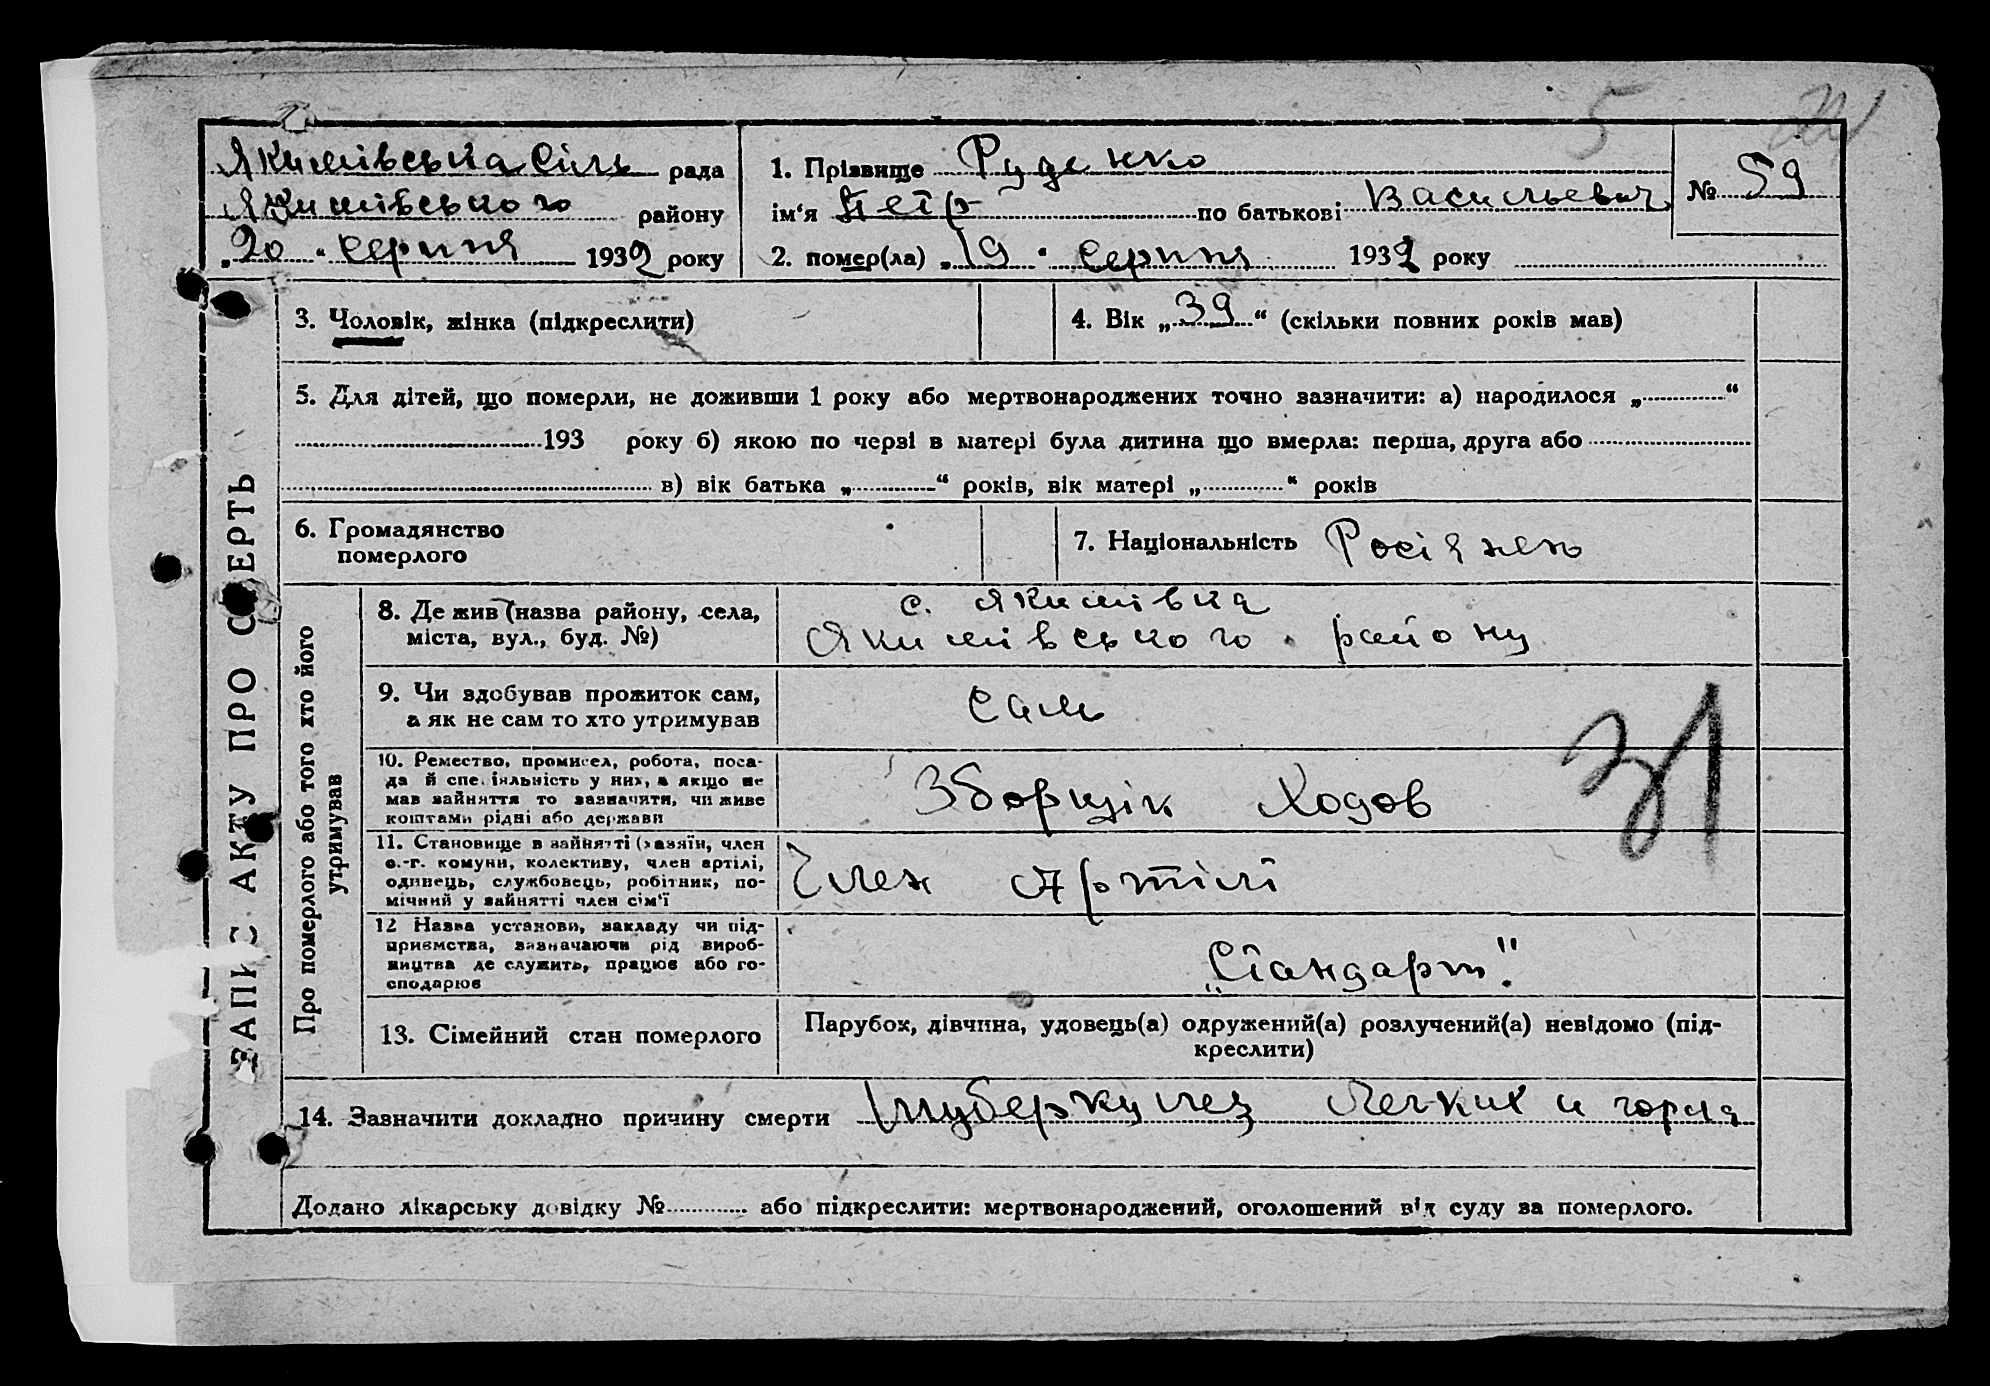 5
Якимівська Сіль рада
Якимівського району
„20“ серпня 1932 року
1. Прізвище Руденко
ім'я Петр по батькові Васильевич
2. помер(ла) „19“ серпня 1932 року
№ 59
ЗАПИС АКТУ ПРО СМЕРТЬ
3. Чоловік, жінка (підкреслити)
4. Вік „39“ (скільки повних років мав)
5. Для дітей, що померли, не доживши 1 року або мертвонароджених точно зазначити: а) народилося „ “
193 року б) якою по черзі в матері була дитина що вмерла: перша, друга або
в) вік батька „ “ років, вік матері „ “ років
6. Громадянство
померлого
7. Національність Росіянен
Про померлого або того хто його
утримував
8. Де жив (назва району, села,
міста, вул., буд. №)
с. Якимівка
Якимівського району
9. Чи здобував прожиток сам,
а як не сам то хто утримував
Сам
10. Ремество, промисел, робота, поса-
да й спеціяльність у них, а якщо не
мав зайняття то зазначити, чи живе
коштами рідні або держави
Зборщік Ходов
31
11. Становище в зайнятті (хазяїн, член
с.-г. комуни, колективу, член артілі,
одинець, службовець, робітник, по-
мічний у зайнятті член сім'ї
Член Артілі
12 Назва установи, закладу чи під-
приємства, зазначаючи рід вироб-
ництва де служить, працює або го-
сподарює
„Стандарт".
13. Сімейний стан померлого
Парубок, дівчина, удовець(а) одружений(а) розлучений(а) невідомо (під-
креслити)
14. Зазначити докладно причину смерти туберкулез легких и горла
Додано лікарську довідку № або підкреслити: мертвонароджений, оголошений від суду за померлого.